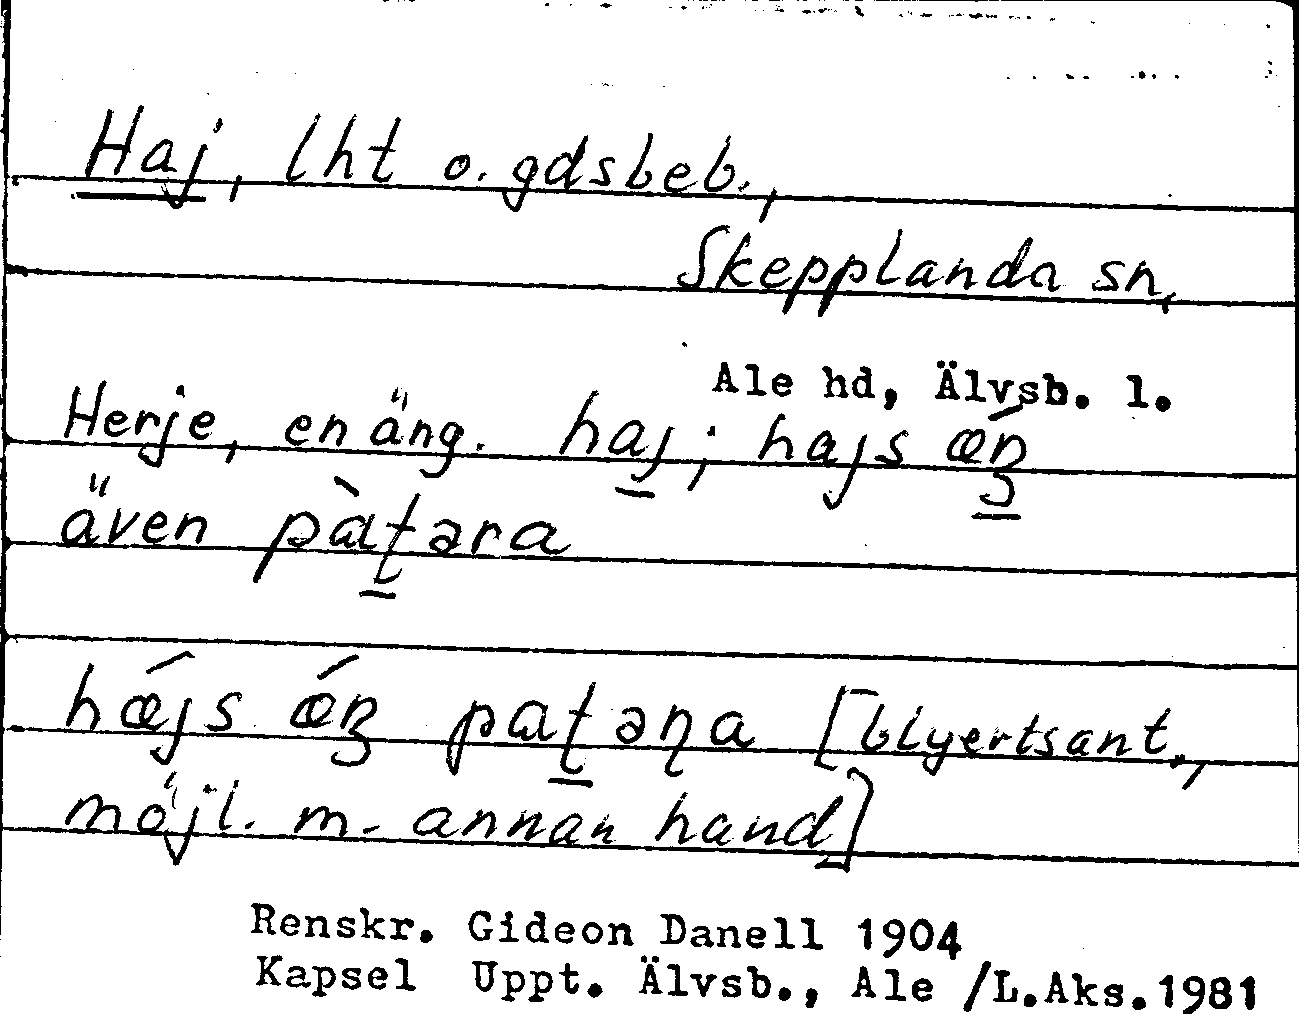 Haj, lht o. gdsbeb.,
Skepplanda sn,
Ale hd, Älvsb. l.
Herje, en äng. haj; hajs
även
[blyertsant.,
möjl. m. annan hand]
Renskr. Gideon Danell 1904
Kapsel Uppt. Älvsb., Ale /L.Aks.1981